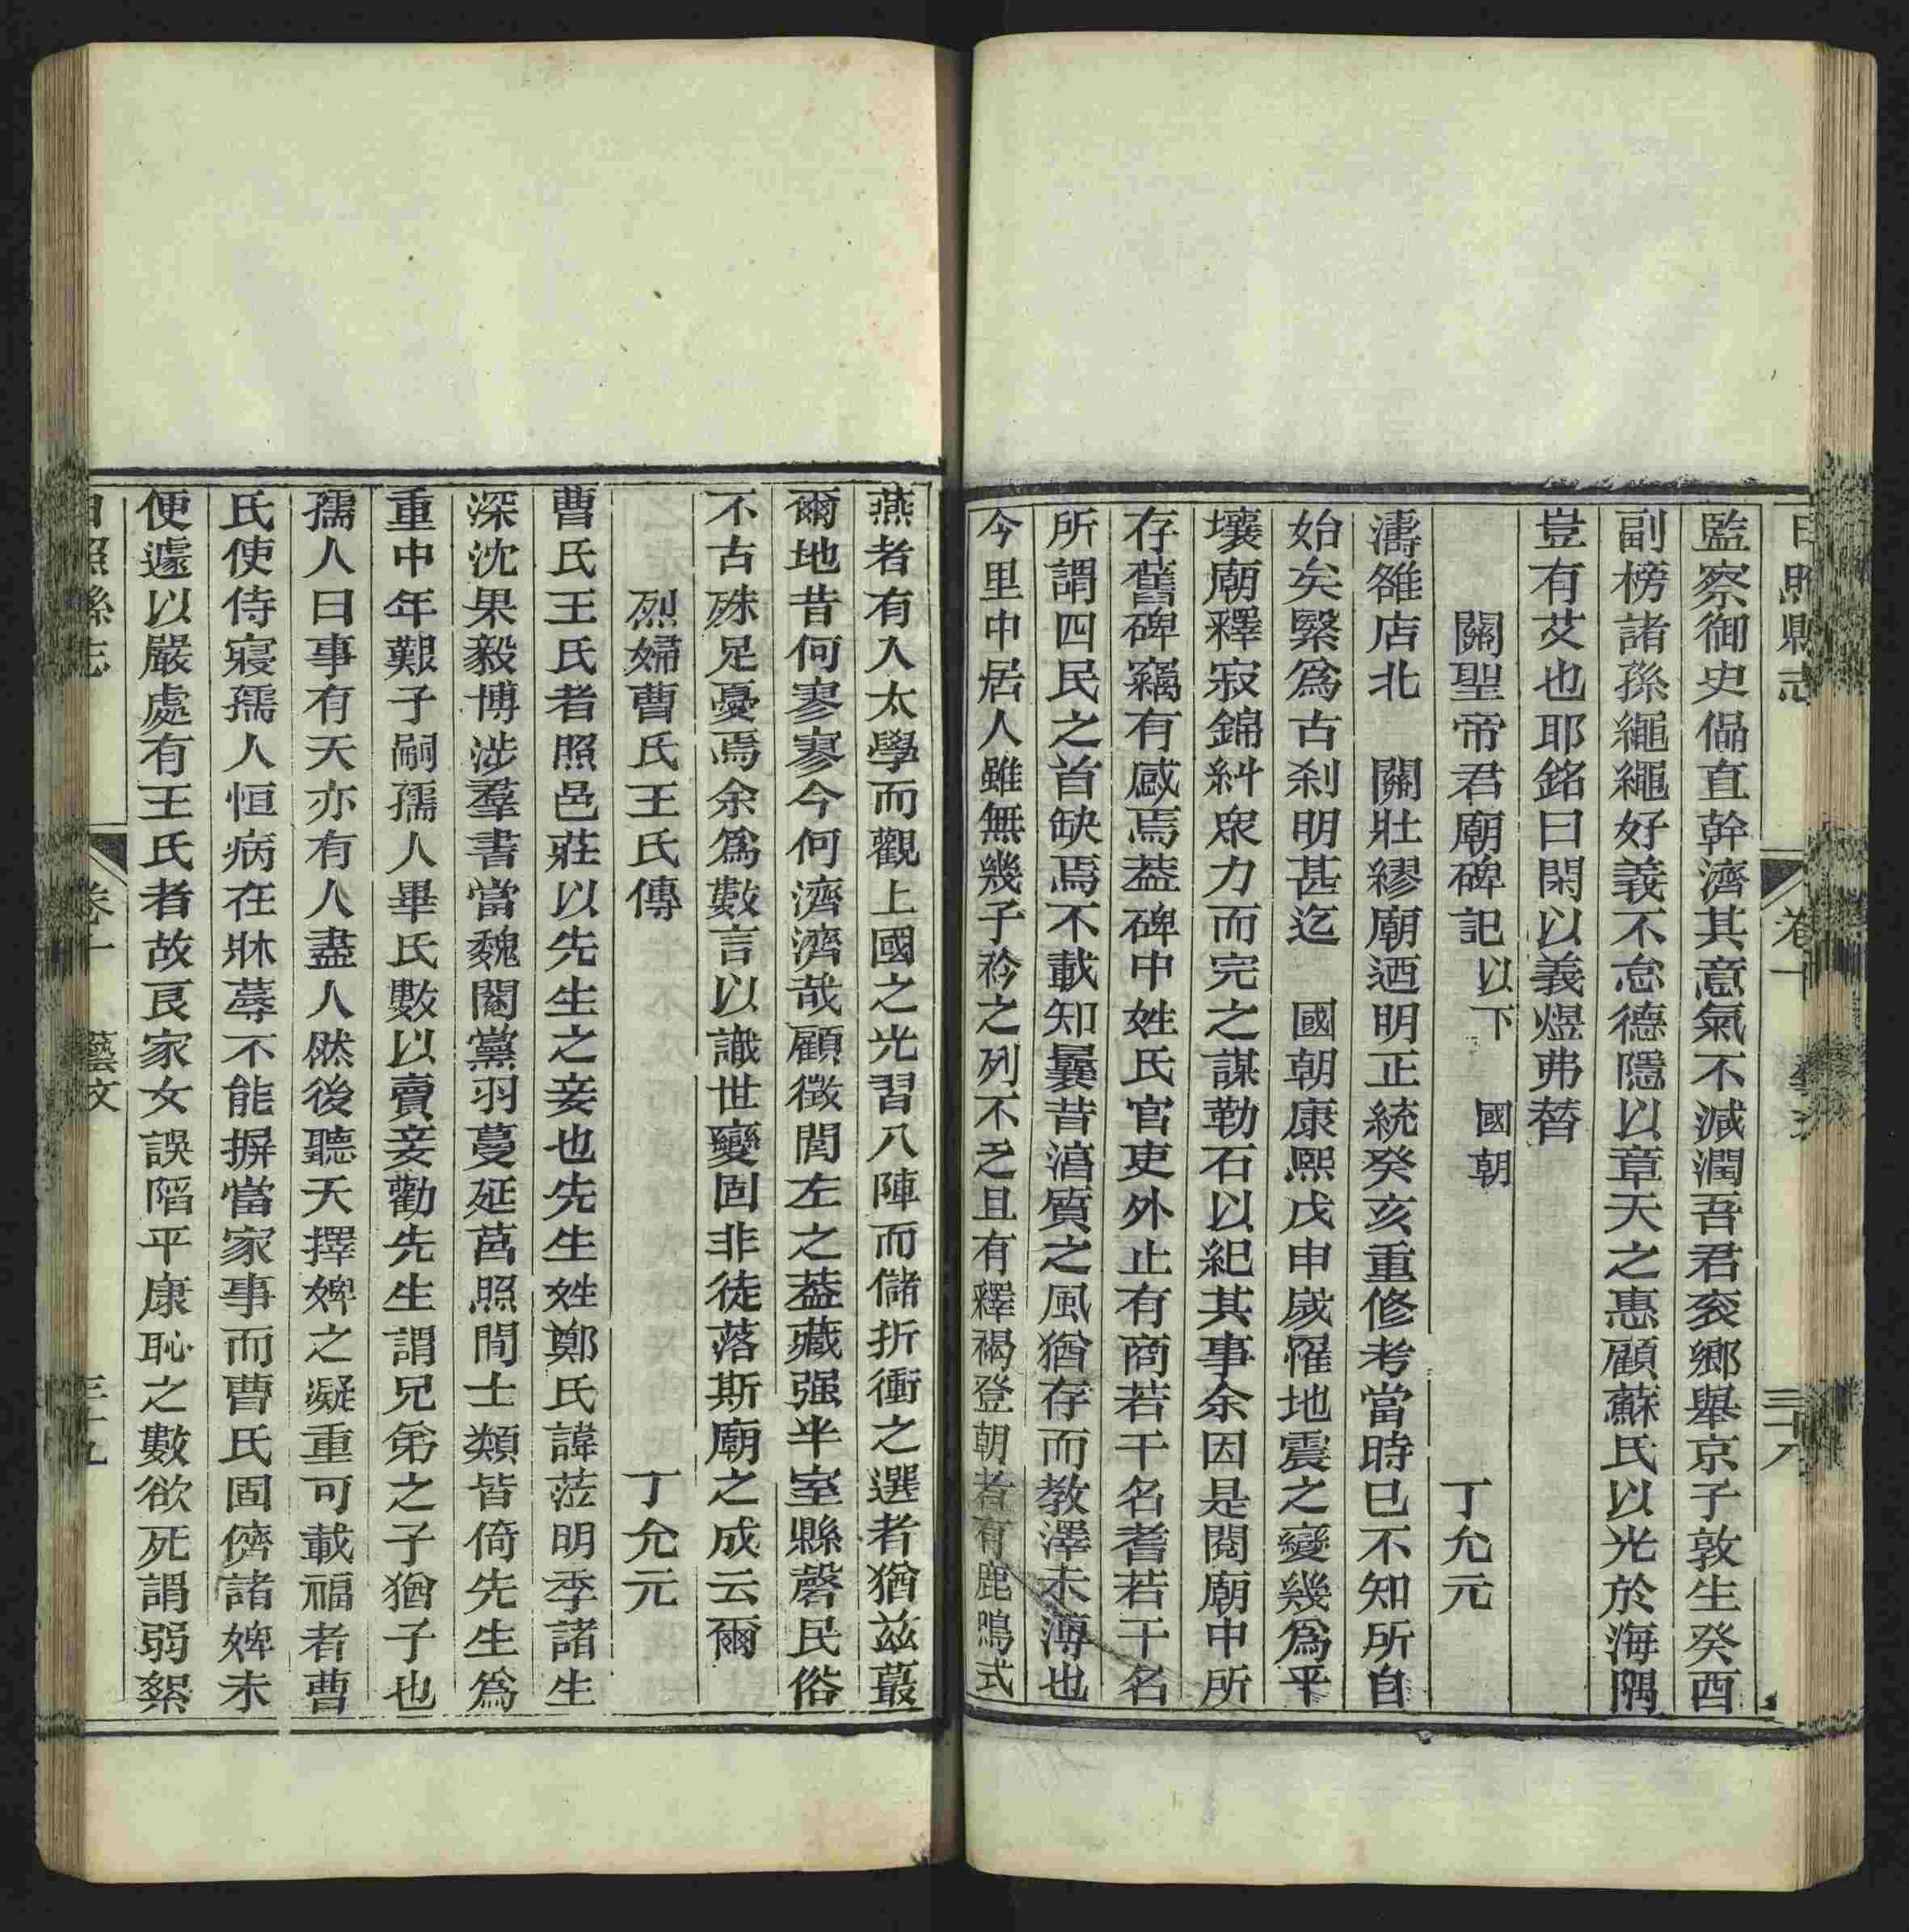 日照縣志 卷十 藝文 三十八
監察御史偈直幹濟其意氣不減潤吾君袞鄉舉京子敦生癸酉
副榜諸孫繩繩好義不怠德隱以章天之惠顧蘇氏以光於海隅
豈有艾也耶銘曰閑以義煜弗替
關聖帝君廟碑記以下 國朝 丁允元
濤雒店北 關壯繆廟迺明正統癸亥重修考當時已不知所自
始矣繄爲古刹明甚迄 國朝康熙戊申歲罹地震之變幾爲平
壤廟釋寂錦糾衆力而完之謀勒石以紀其事余因是閱廟中所
存舊碑竊有感焉葢碑中姓氏官吏外止有商若干名耆若干名
所謂四民之首缺焉不載知曩昔湻質之風猶存而教澤未溥也
今里中居人雖無幾子衿之列不乏且有釋褐登朝者有鹿鳴式
燕者有入太學而觀上國之光習八陣而儲折衝之選者猶兹蕞
爾地昔何寥寥今何濟濟哉顧徵閭左之葢藏强半室縣罄民俗
不古殊足憂焉余爲數言以識世變固非徒落斯廟之成云爾
烈婦曹氏王氏傳 丁允元
曹氏王氏者照邑莊以先生之妾也先生姓鄭氏諱蒞明季諸生
深沈果毅博涉羣書當魏閹黨羽蔓延莒照間士類皆倚先生爲
重中年艱子嗣孺人畢氏數以賣妾勸先生謂兄弟之子猶子也
孺人曰事有天亦有人盡人然後聽天擇婢之凝重可載福者曹
氏使侍寢孺人恒病在牀蓐不能摒當家事而曹氏固儕諸婢未
便遽以嚴處有王氏者故良家女誤陷平康恥之數欲死謂弱絮
日照縣志 卷十 藝文 三十九